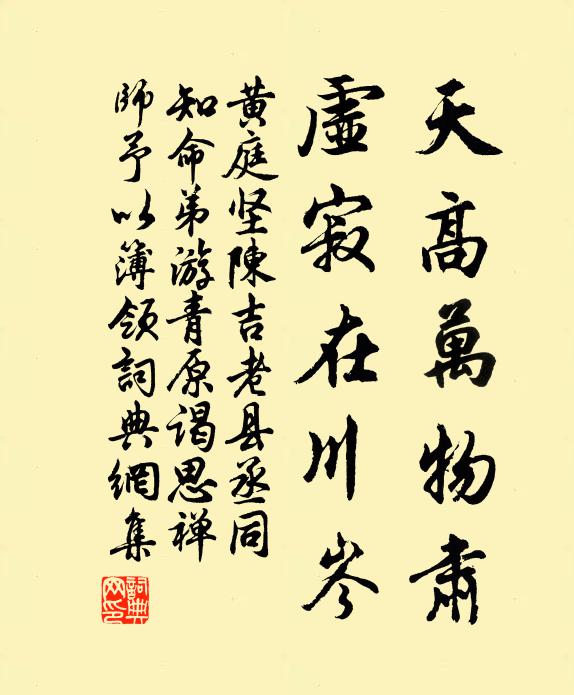 天高萬物肅
虛寂在川岑
黄庭坚陳吉老县丞同
知命弟游青原谒思禅
師予以簿领詞典網集
詞典网印